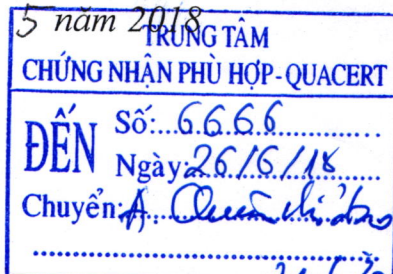 5 năm 2018
TRUNG TÂM
CHỨNG NHẬN PHÙ HỢP-QUACERT
ĐẾN
Số:...6666
Ngày:26/6/18
Chuyển: A.